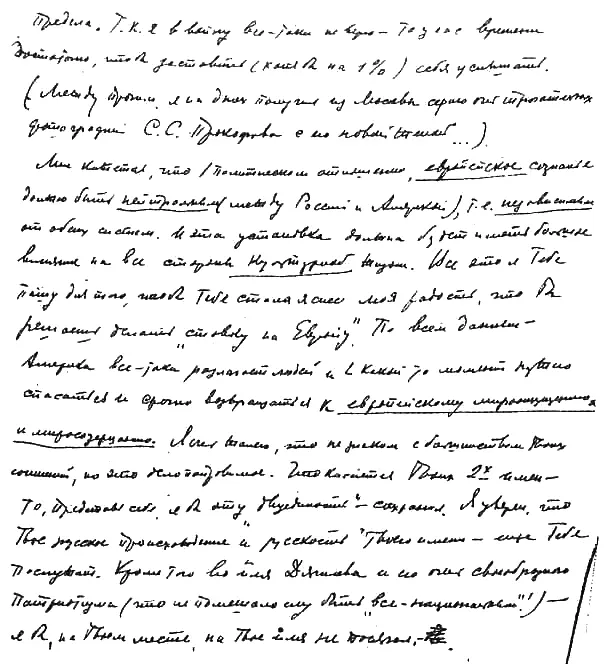 предела. Т.к. я в войну все-таки не верю – то у нас времени
достаточно, чтоб заставить (хотя б на 1%) себя услышать.
(Между прочим, я на днях получил из Москвы серию очень трогательных
фотографий С.С. Прокофьева с его новой женой...)
Мне кажется, что в политическом отношении, европейское сознание
должно быть нейтральным (между Россией и Америкой), т.е. независимым
от обеих систем. И эта установка должна будет иметь большое
влияние на все стороны культурной жизни. Все это я Тебе
пишу для того, чтоб Тебе стала яснее моя радость, что Вы
решаете делать "ставку на Европу". По всем данным –
Америка все-таки разлагает людей и в какой-то момент нужно
спасаться и срочно возвращаться к европейскому мироощущению
и миросозерцанию. Я очень жалею, что не знаком с большинством Твоих
сочинений, но это дело поправимое. Что касается Твоих 2х имен –
то, представь себе, я б эту "двуликость" – сохранил. Я уверен, что
Твое русское происхождение и "русскость" Твоего имени – еще Тебе
послужат. Кроме того во имя Дягилева и его очень своеобразного
патриотизма (что не помешало ему быть "все-национальным"!) –
я б, на Твоем месте, на Твое имя не посягал.